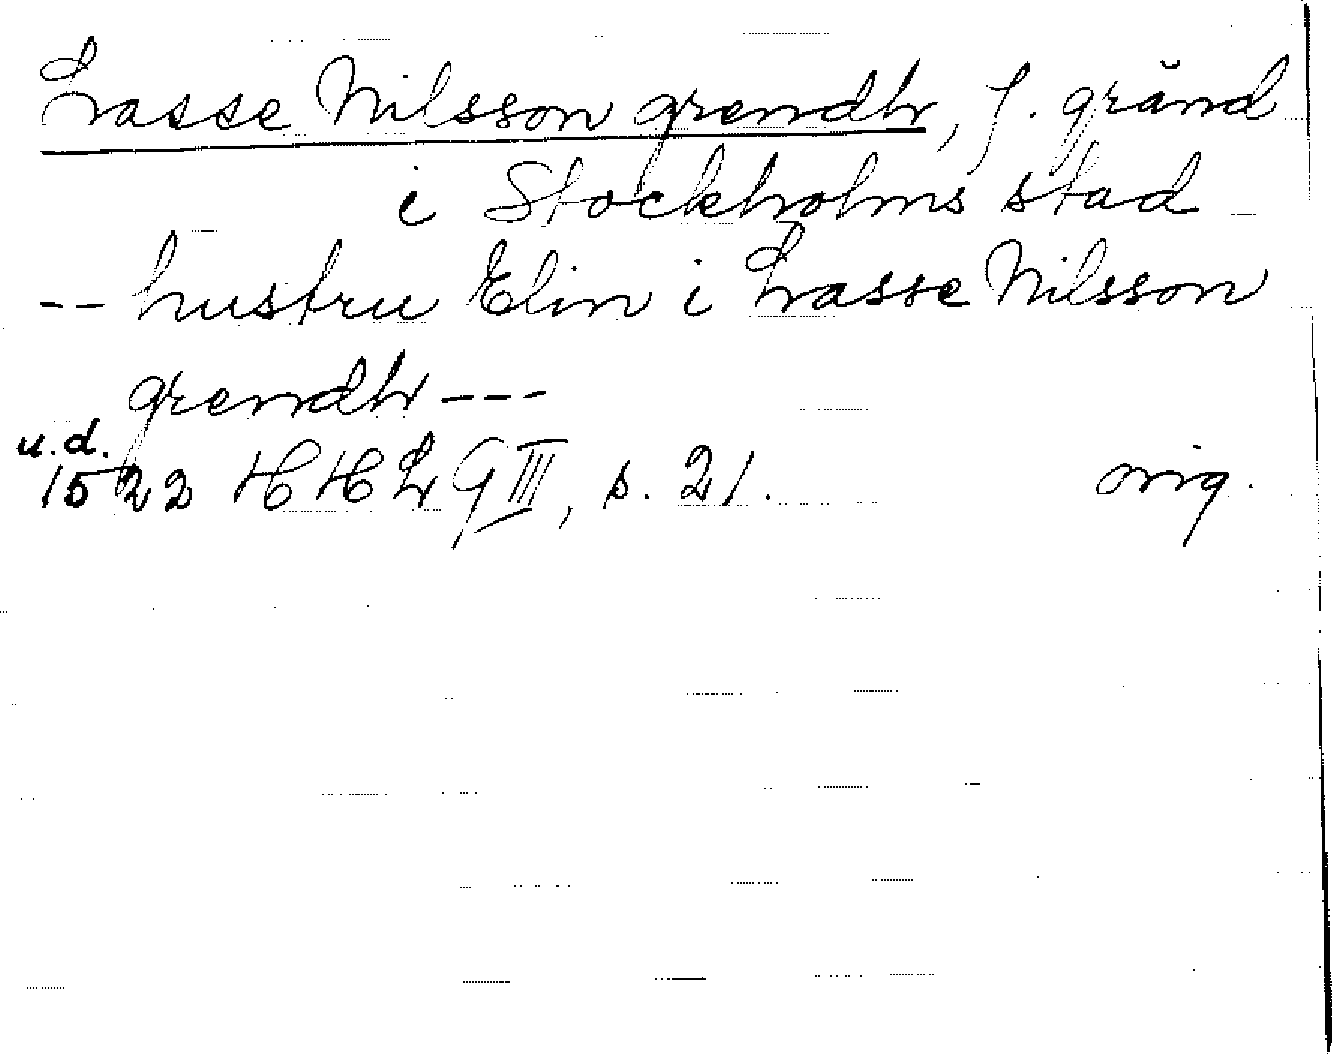 Lasse Nilsson grendh, f. gränd
i Stockholms stad
-- hustru Elin i Lasse Nilsson
grendh ---
u.d.
1522 HHLG III, s. 21. orig.